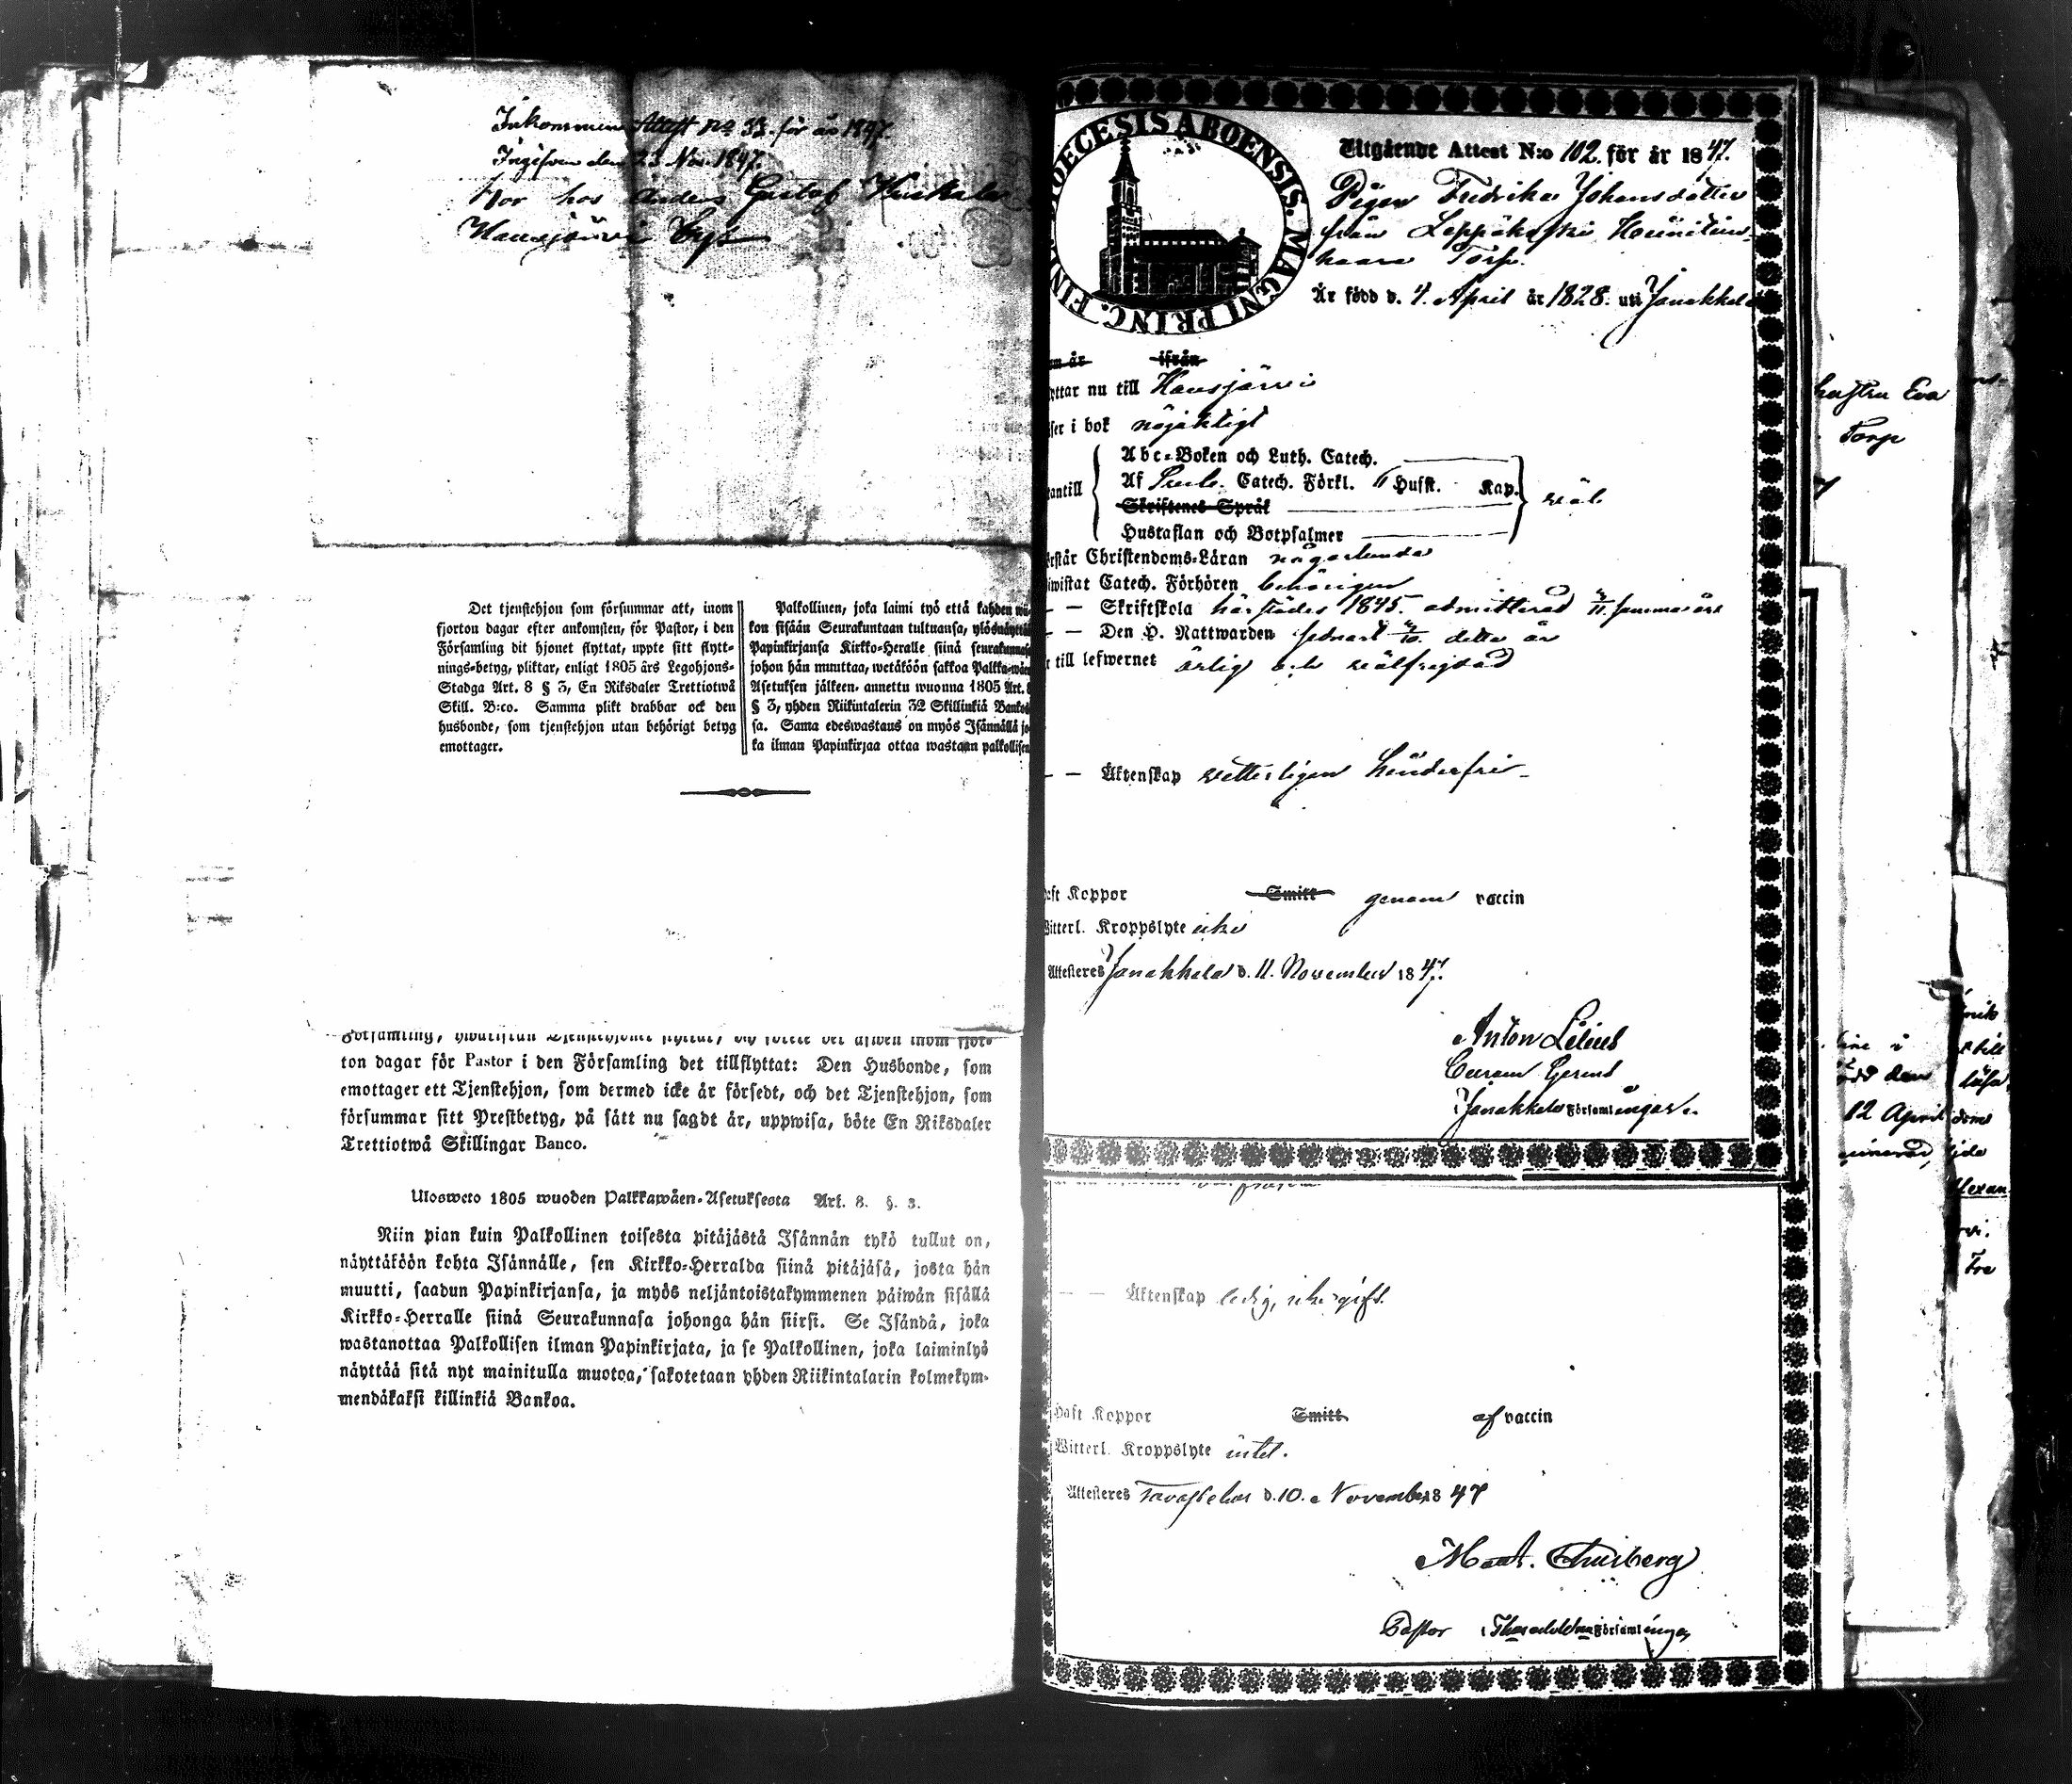 Inkommen Attest No 33. för år 1847.
Ingifven den 23 Nov. 1847.
bor hos Anders Gustaf
Hausjärvi by
Det tjenstehjon som försummar att, inom
fjorton dagar efter ankomsten, för Pastor, i den
Församling dit hjonet flyttat, uppte sitt flytt-
nings-betyg, pliktar, enligt 1805 års Legohjons-
Stadga Art. 8 § 3, En Riksdaler Trettiotwå
Skill. B:co. Samma plikt drabbar ock den
husbonde, som tjenstehjon utan behörigt betyg
emottager.
Palkollinen, joka laimi lyö että kahden wii-
kon sisään Seurakuntaan tultuansa, ylösnäyttää
Papinkirjansa Kirkko-Heralle siinä seurakunnasa
johon hän muuttaa, wetäköön sakkoa Palkka-wäen
Asetuksen jälkeen annettu wuonna 1805 Art. 8
§ 3, yhden Riikintalerin 32 Skillinkiä Bankos-
sa. Sama edeswastaus on myös Isännällä jo-
ka ilman Papinkirjaa ottaa wastaan palkollisen
ton dagar för Pastor i den Församling det tillflyttat: Den Husbonde, som
emottager ett Tjenstehjon, som dermed icke är försedt, och det Tjenstehjon, som
försummar sitt Prestbetyg, på sätt nu sagdt är, uppwisa, böte En Riksdaler
Trettiotwå Skillingar Banco.
Ulosweto 1805 wuoden Palkkawäen-Asetuksesta Art. 8. §. 3.
Niin pian kuin Palkollinen toisesta pitäjästä Isännän tykö tullut on,
näyttäköön kohta Isännälle, sen Kirkko-Herralda siinä pitäjäsä, josta hän
muutti, saadun Papinkirjansa, ja myös neljäntoistakymmenen päiwän sisällä
Kirkko-Herralle siinä Seurakunnasa johonga hän siirsi. Se Isändä, joka
wastanottaa Palkollisen ilman Papinkirjata, ja se Palkollinen, joka laiminlyö
näyttää sitä nyt mainitulla muotoa, sakotetaan yhden Riikintalarin kolmekym-
mendäkaksi killinkiä Bankoa.
DIOECESIS ABOENSIS. MAGNI PRINC. FINL
Utgående Attest N:o 102. för år 1847.
Pigan Fredrika Johansdotter
från Leppäkoski
Torp.
Är född d. 4. April år 1828. uti Janakkala
ifrån
nu till Hausjärvi
i bok nöjaktigt
Abc-Boken och Luth. Catech.
Af Catech. Förkl. Husst. Kap.
Skriftenes Språk
Hustaflan och Botpsalmer
väl
Christendoms-Läran någorlunda
Catech. Förhören behörigen
— — Skriftskola härstädes 1845. admitterad samma år
— — Den H. Nattwarden sednast detta år
till lefwernet ärlig och välfrejdad
— — Äktenskap vetterligen hinderfri
Koppor Smitt genom vaccin
Witterl. Kroppslyte icke
Attesteras Janakkala d. 11. November 1847.
Anton Lilius
Curam Gerens
i Janakkala Församlingar.
— — Äktenskap ledig, icke gift.
Haft Koppor Smitt af vaccin
Witterl. Kroppslyte intet.
Attesteras Tavastehus d. 10. November 1847
Pastor i Församlingen
Eva
Torp
12 April